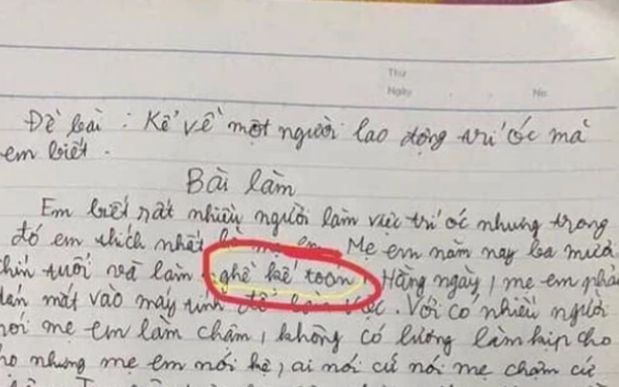 Thứ
Ngày . . No
Đề bài : Kể về một người lao động trí óc mà
em biết.
Bài làm
Em biết rất nhiều người làm việc trí óc nhưng trong
đó em thích nhất là mẹ em. Mẹ em năm nay ba mươi
chín tuổi và làm nghề kế toán. Hằng ngày, mẹ em phải
dán mắt vào máy tính để làm việc. Với có nhiều người
nói mẹ em làm chậm, không có lương làm kịp cho
họ nhưng mẹ em nói kệ, ai nói cứ nói mẹ chậm cứ